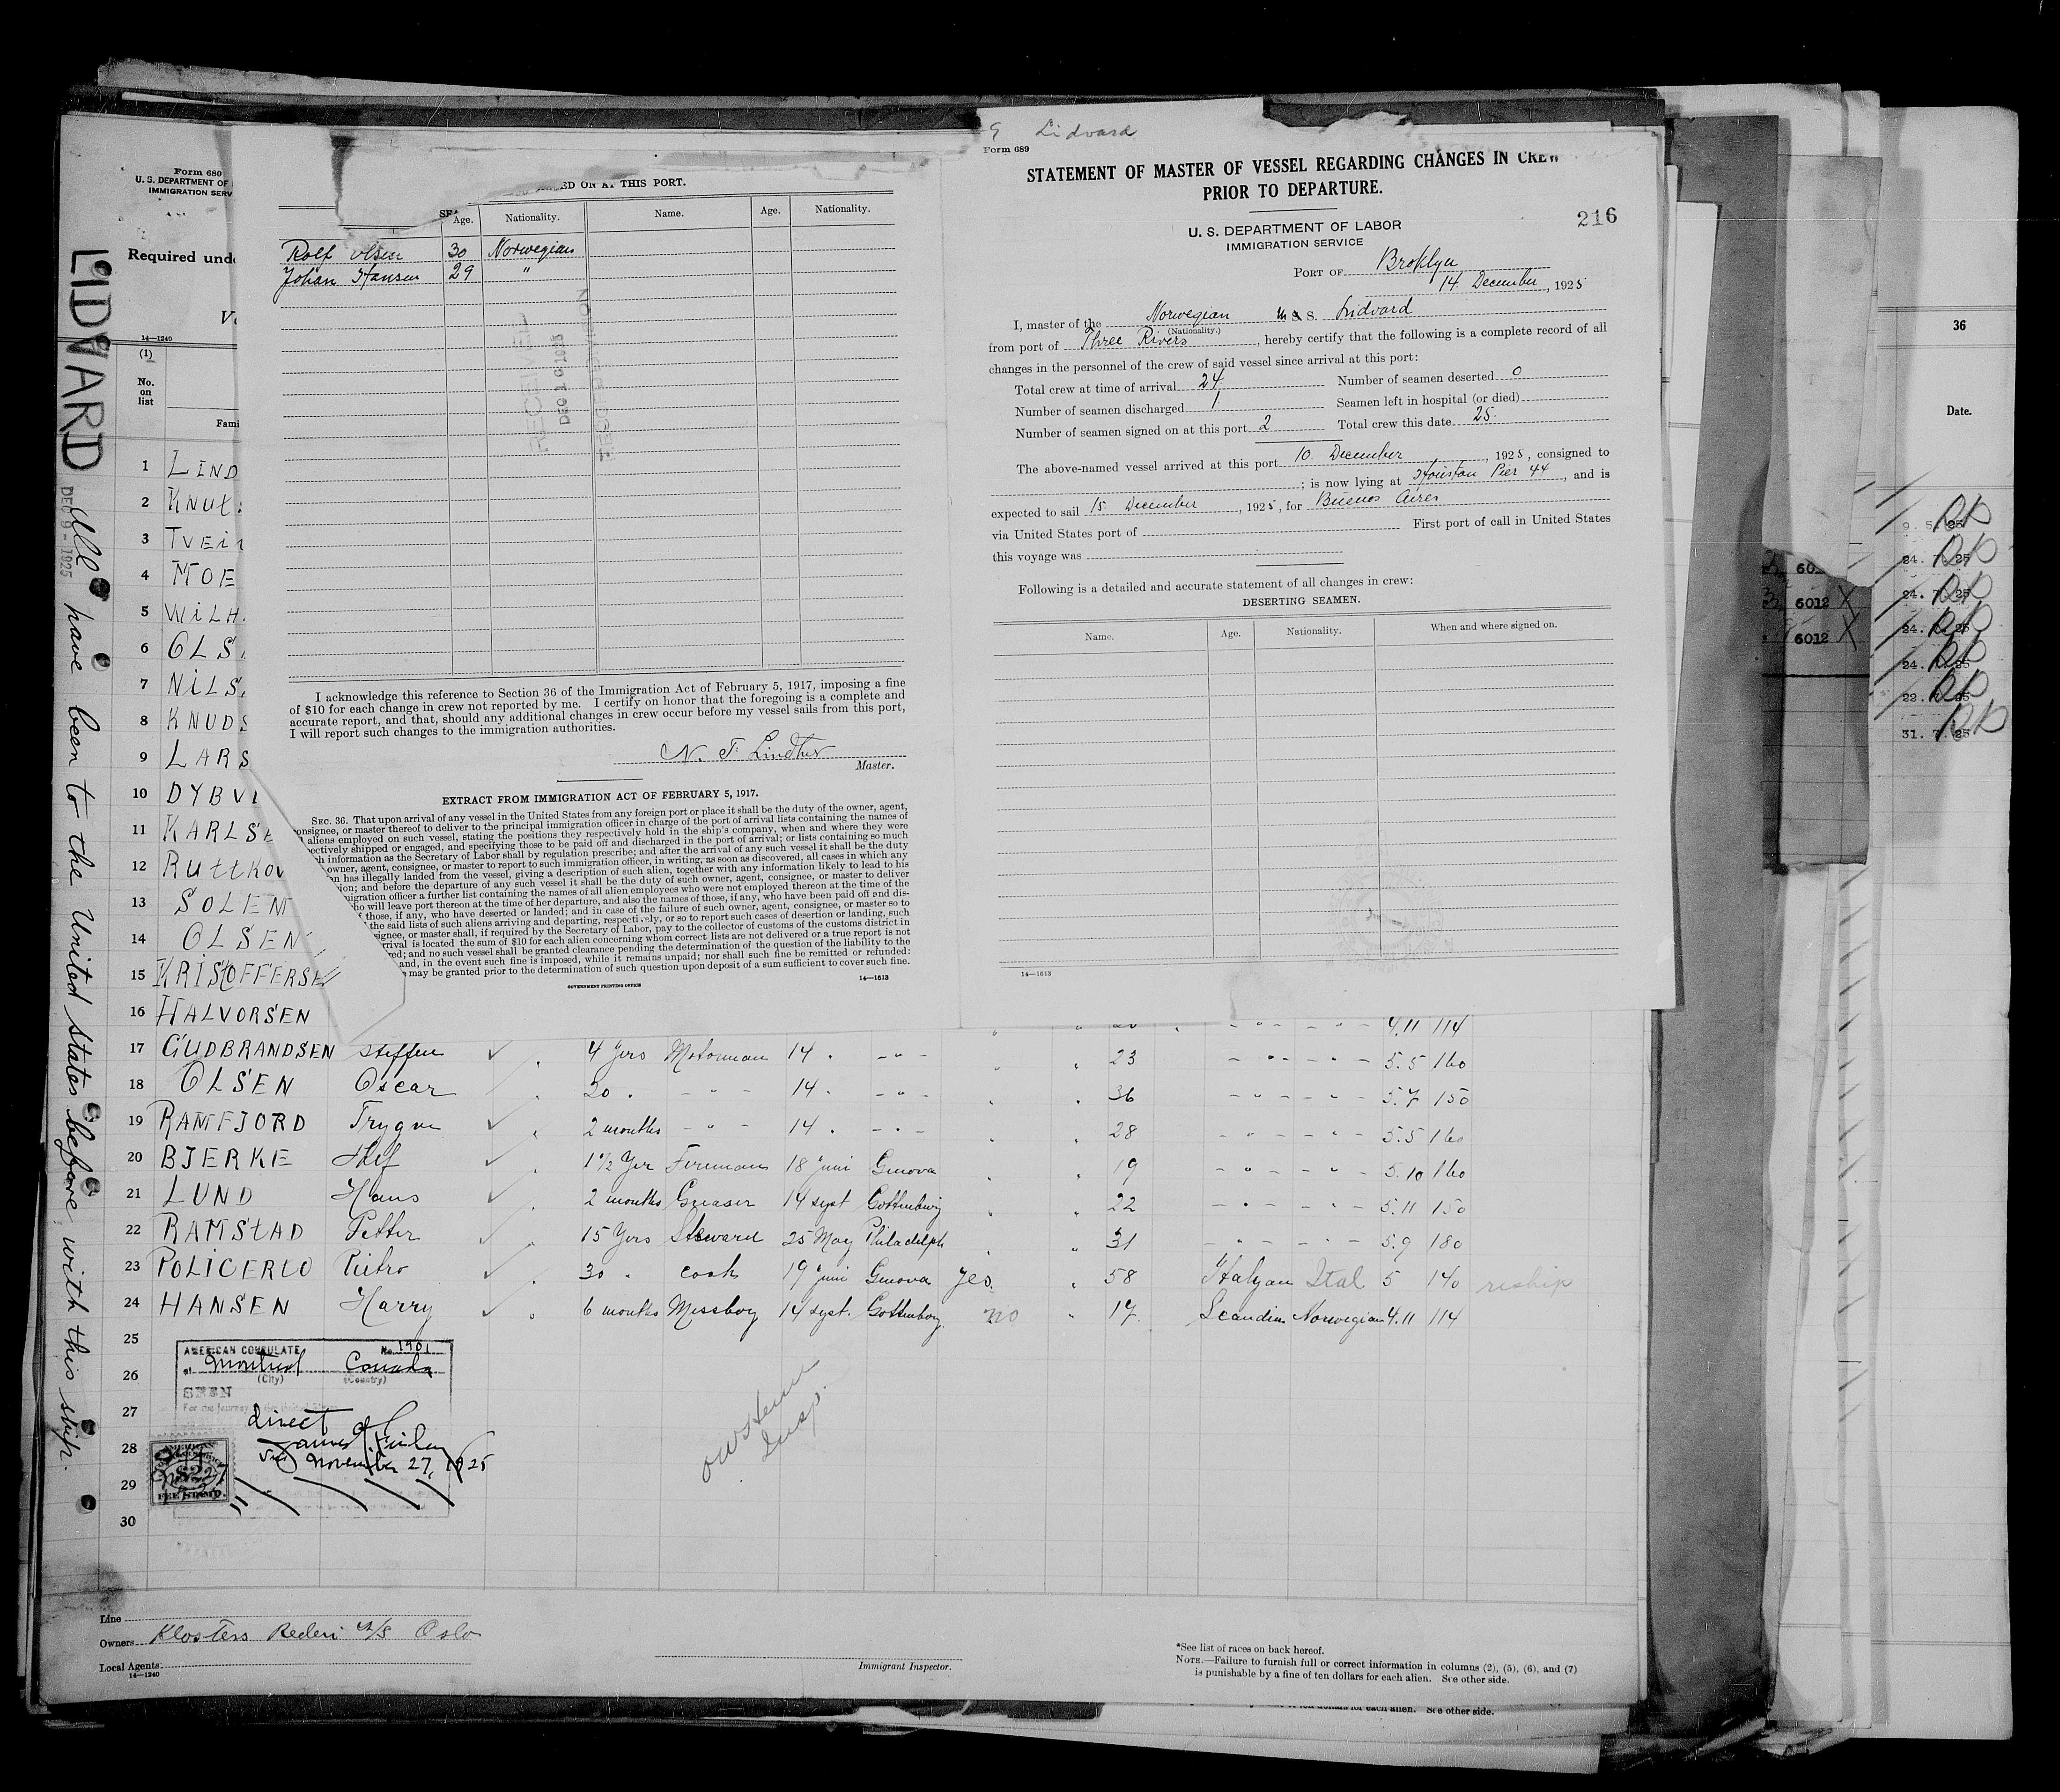 Form 680
U. S. DEPARTMENT OF
IMMIGRATION SERV
Required unde
14—1240
(1)
No.
on
list
Fami
LIDVARD
DEC 9 - 1925
All have been to the United States before with this ship.
1 LIND
2 KNUT
3 TVEIT
4 MOE
5 WILH
6 OLS
7 NILS
8 KNUDS
9 LARS
10 DYBVI
11 KARLSE
12 RUTTKOV
13 SOLEM
14 OLSEN
15 KRISTOFFERSE
16 HALVORSEN 4.11 114
17 GUDBRANDSEN Steffen 4 Yers Motorman 14 . - " - 23 5.5 160
18 OLSEN Oscar 20 . - " - 14 . - " - 36 5.7 150
19 RAMFJORD Trygve 2 months - " - 14 . - " - 28 5.5 160
20 BJERKE 1 1/2 Yer Fireman 18 juni Genova 19 5.10 160
21 LUND Hans 2 months Greaser 14 sept Gottenburg 22 5.11 150
22 RAMSTAD Petter 15 Yers Steward 25 May Philadelph 31 5.9 180
23 POLICERLO Pietro 30 " cook 19 juni Genova yes " 58 Italyan Ital 5 140 reship
24 HANSEN Harry 6 months Messboy 14 sept. Gottenborg no " 17 Scandin Norwegian 4.11 114
25
26
27
28
29
30
AMERICAN CONSULATE No. 1901
at Montreal Canada
(City) (Country)
SEEN
For the journey to the United States
Direct
November 27, 1925
FEE STAMP
Insp.
Line
Owners Klosters Rederi A/S Oslo
Local Agents
14—1240
Immigrant Inspector.
*See list of races on back hereof.
NOTE.—Failure to furnish full or correct information in columns (2), (5), (6), and (7)
is punishable by a fine of ten dollars for each alien. See other side.
for each alien. See other side.
ED ON AT THIS PORT.
Age. Nationality. Name. Age. Nationality.
Rolf Olsen 30 Norwegian
Johan Hansen 29 "
RECEIVED
DEC 16 1925
I acknowledge this reference to Section 36 of the Immigration Act of February 5, 1917, imposing a fine
of $10 for each change in crew not reported by me. I certify on honor that the foregoing is a complete and
accurate report, and that, should any additional changes in crew occur before my vessel sails from this port,
I will report such changes to the immigration authorities.
Master.
EXTRACT FROM IMMIGRATION ACT OF FEBRUARY 5, 1917.
SEC. 36. That upon arrival of any vessel in the United States from any foreign port or place it shall be the duty of the owner, agent,
consignee, or master thereof to deliver to the principal immigration officer in charge of the port of arrival lists containing the names of
aliens employed on such vessel, stating the positions they respectively hold in the ship's company, when and where they were
ectively shipped or engaged, and specifying those to be paid off and discharged in the port of arrival; or lists containing so much
ch information as the Secretary of Labor shall by regulation prescribe; and after the arrival of any such vessel it shall be the duty
owner, agent, consignee, or master to report to such immigration officer, in writing, as soon as discovered, all cases in which any
en has illegally landed from the vessel, giving a description of such alien, together with any information likely to lead to his
ion; and before the departure of any such vessel it shall be the duty of such owner, agent, consignee, or master to deliver
migration officer a further list containing the names of all alien employees who were not employed thereon at the time of the
ho will leave port thereon at the time of her departure, and also the names of those, if any, who have been paid off and dis-
f those, if any, who have deserted or landed; and in case of the failure of such owner, agent, consignee, or master so to
the said lists of such aliens arriving and departing, respectively, or so to report such cases of desertion or landing, such
signee, or master shall, if required by the Secretary of Labor, pay to the collector of customs of the customs district in
rrival is located the sum of $10 for each alien concerning whom correct lists are not delivered or a true report is not
red; and no such vessel shall be granted clearance pending the determination of the question of the liability to the
and, in the event such fine is imposed, while it remains unpaid; nor shall such fine be remitted or refunded:
may be granted prior to the determination of such question upon deposit of a sum sufficient to cover such fine.
GOVERNMENT PRINTING OFFICE
14—1613
Lidvard
Form 689
STATEMENT OF MASTER OF VESSEL REGARDING CHANGES IN CREW
PRIOR TO DEPARTURE.
216
U. S. DEPARTMENT OF LABOR
IMMIGRATION SERVICE
PORT OF Broklyn
14 December, 1925
I, master of the Norwegian M S. Lidvard
(Nationality.)
from port of Three Rivers, hereby certify that the following is a complete record of all
changes in the personnel of the crew of said vessel since arrival at this port:
Total crew at time of arrival 24 Number of seamen deserted 0
Number of seamen discharged 1 Seamen left in hospital (or died)
Number of seamen signed on at this port 2 Total crew this date 25
The above-named vessel arrived at this port 10 December, 1925, consigned to
; is now lying at Houston Pier 44, and is
expected to sail 15 December, 1925, for Buenos Aires
via United States port of First port of call in United States
this voyage was
Following is a detailed and accurate statement of all changes in crew:
DESERTING SEAMEN.
Name. Age. Nationality. When and where signed on.
14—1613
36
Date.
601
6012 X
6012 X
9. 5. 25
24. 7. 25
24. 7. 25
24. 7. 25
24. 7. 25
22. 7. 25
31. 7. 25